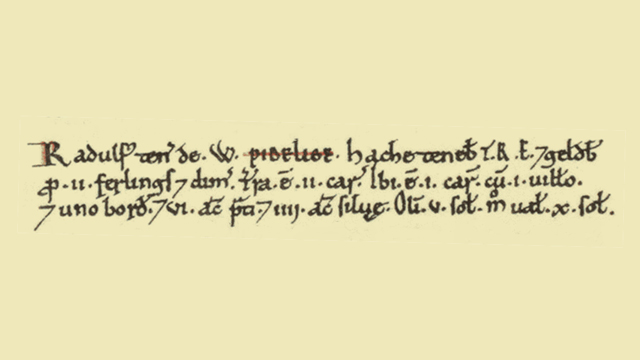 Radulf' ten' de. W. pidelioe. hache teneb' T. R. E. ⁊ geldb'
p. ii. ferlings ⁊ dim'. t'ra. ē. ii. car'. Ibi. ē. i. car'. cū. i. uill'o.
⁊ uno bord'. ⁊ vi. ac' p'ti. ⁊ iiii. ac' siluę. Olī. v. sol'. m̊ ual'. x. sol'.